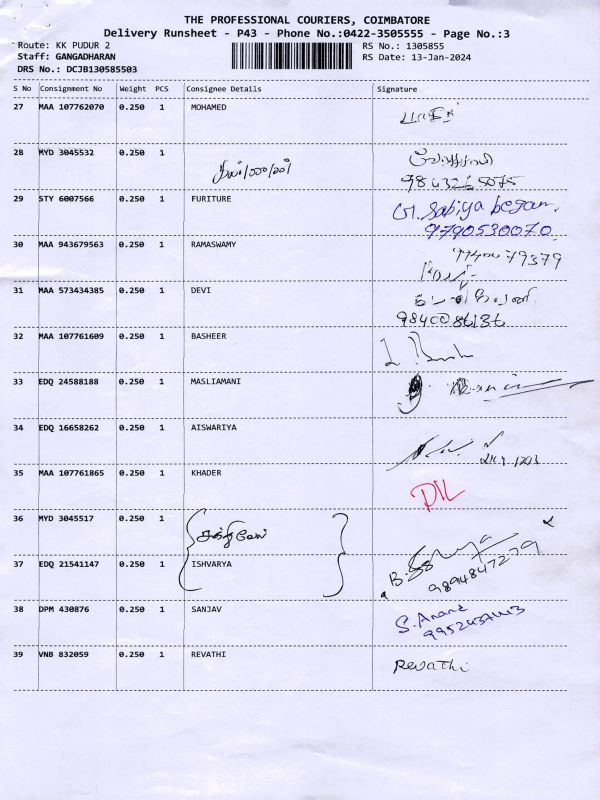 THE PROFESSIONAL COURIERS, COIMBATORE
Delivery Runsheet - P43 - Phone No.:0422-3505555 - Page No.:3
Route: KK PUDUR 2 RS No.: 1305855
Staff: GANGADHARAN RS Date: 13-Jan-2024
DRS No.: DCJB130585503
S No Consignment No Weight PCS Consignee Details Signature
27 MAA 107762070 0.250 1 MOHAMED
28 MYD 3045532 0.250 1
29 STY 6007566 0.250 1 FURITURE G. Sabiya begam.
9790530070.
30 MAA 943679563 0.250 1 RAMASWAMY
31 MAA 573434385 0.250 1 DEVI
32 MAA 107761609 0.250 1 BASHEER
33 EDQ 24588188 0.250 1 MASLIAMANI
34 EDQ 16658262 0.250 1 AISWARIYA
35 MAA 107761865 0.250 1 KHADER
36 MYD 3045517 0.250 1 சக்திவேல்
37 EDQ 21541147 0.250 1 ISHVARYA
9894847279
38 DPM 430876 0.250 1 SANJAV S. Anand
39 VNB 832059 0.250 1 REVATHI Revathi